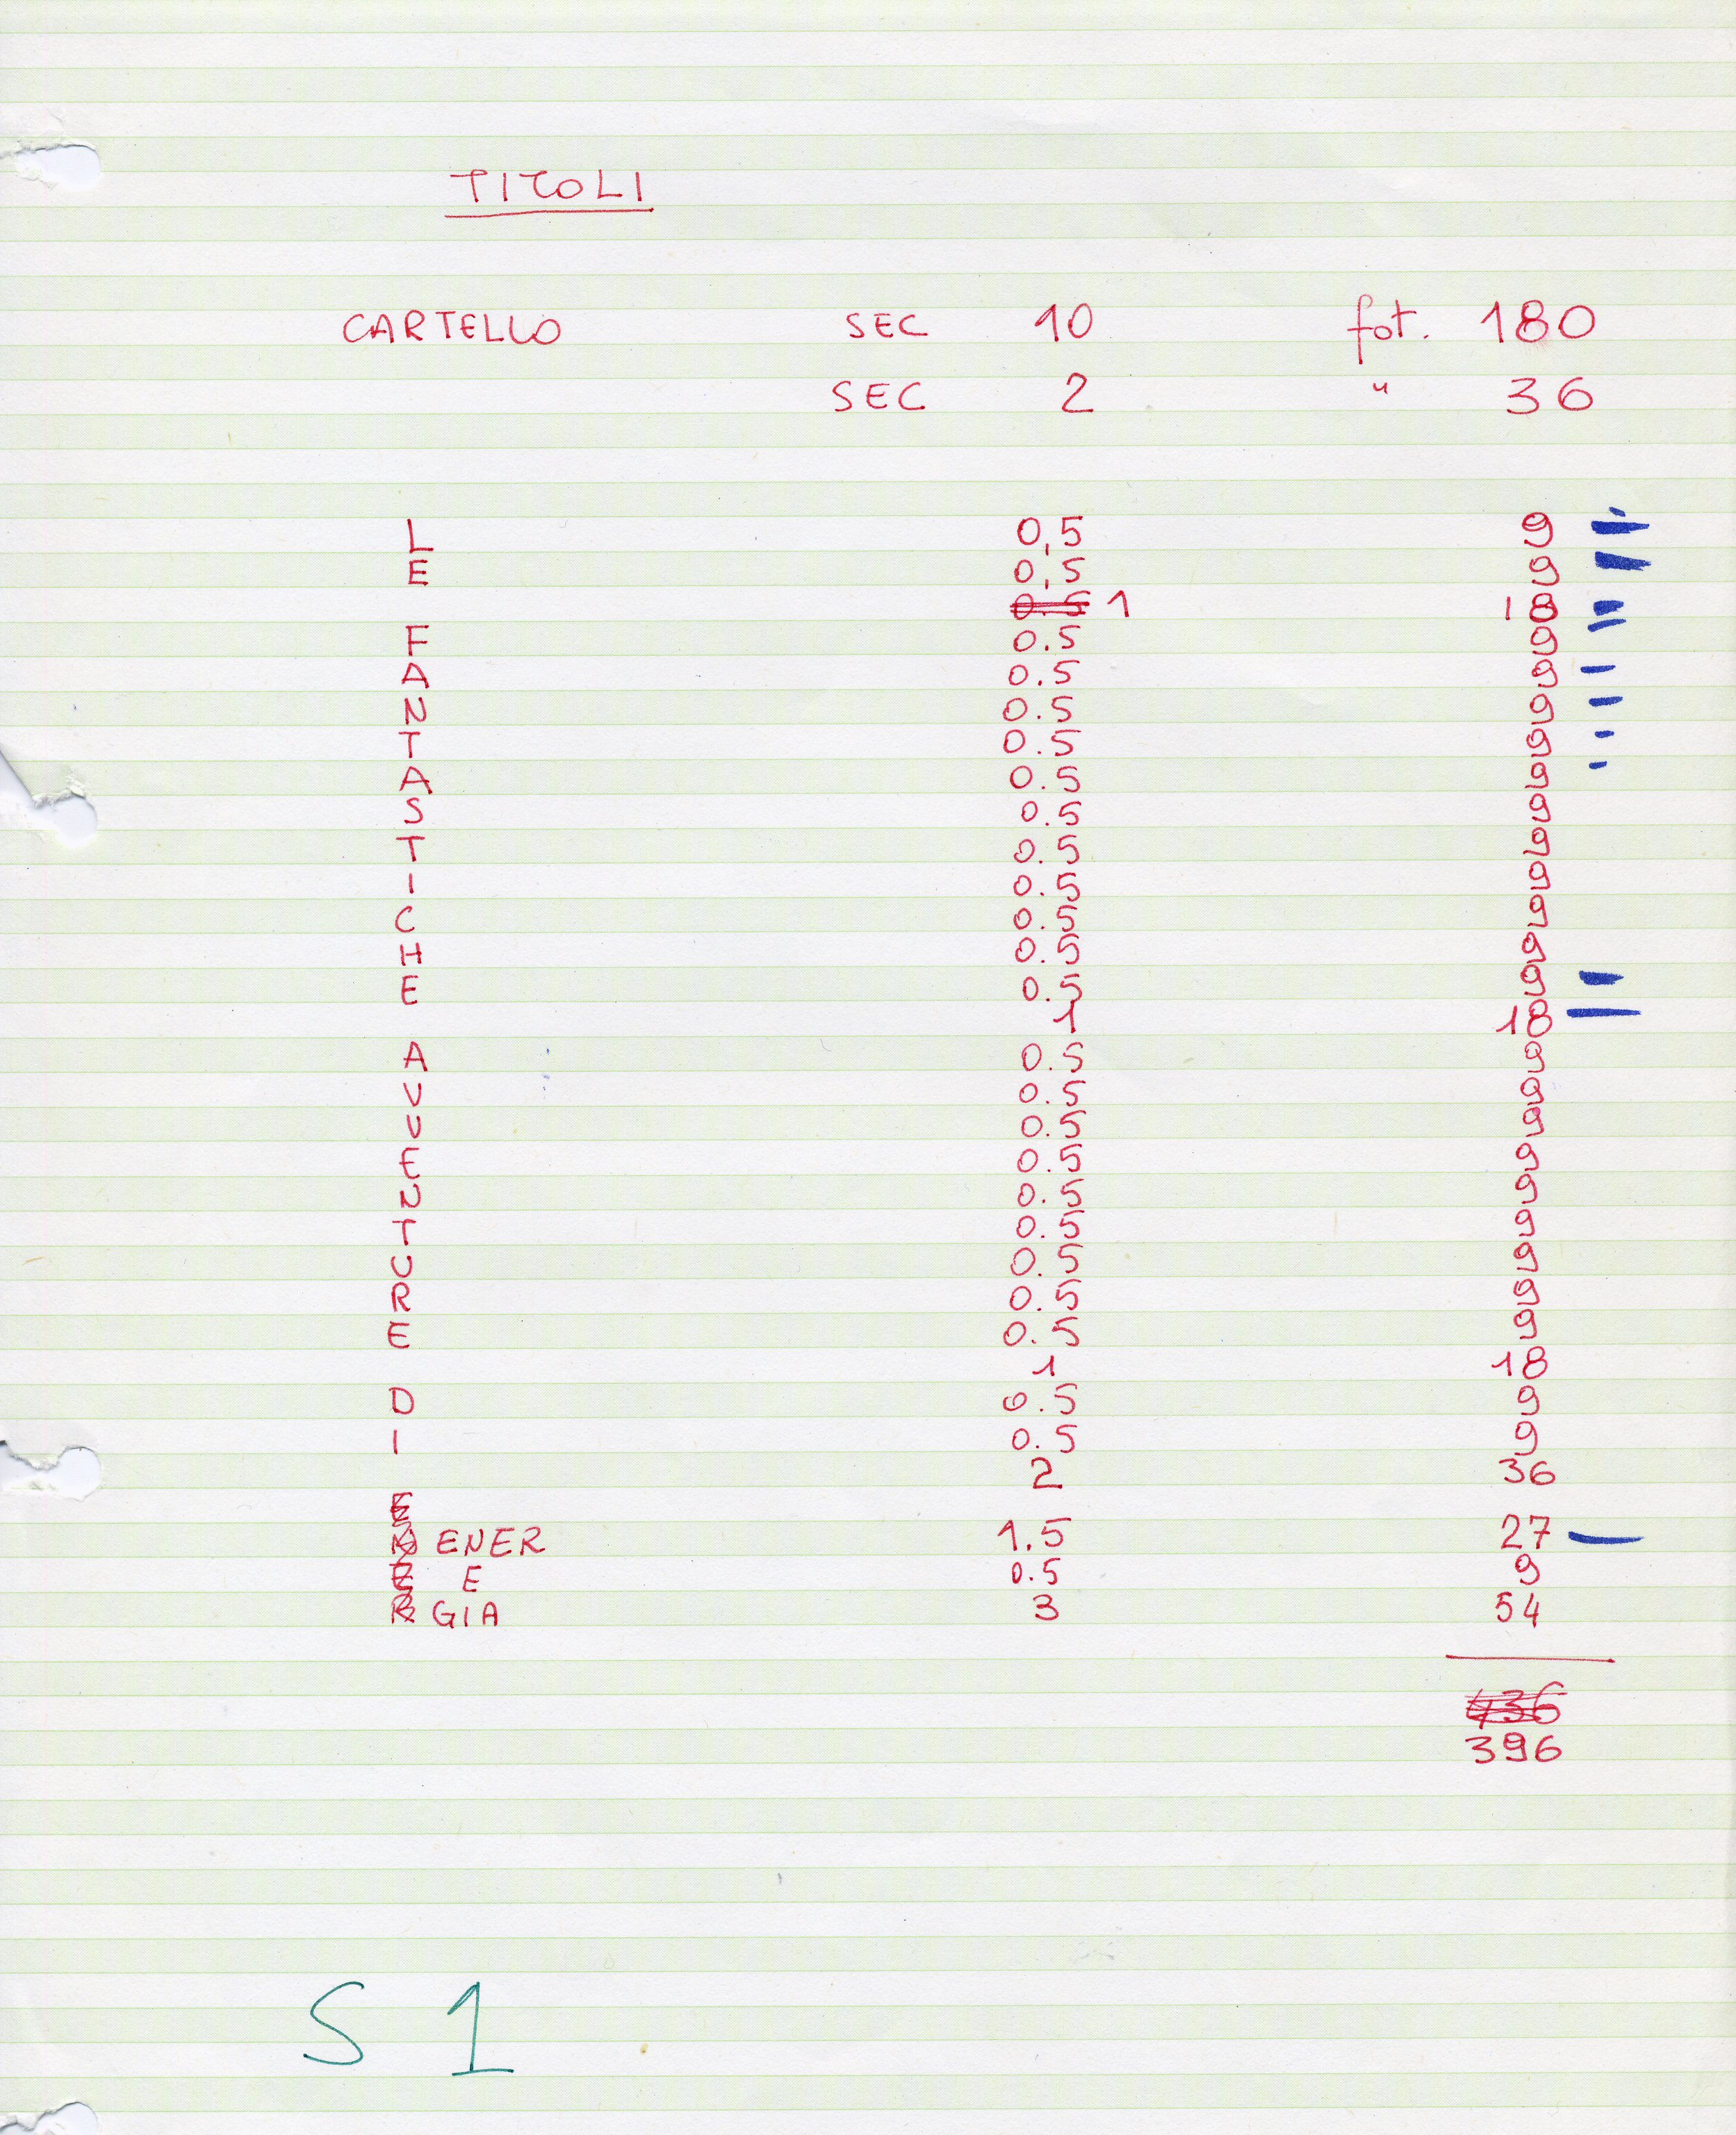 TITOLI
CARTELLO SEC 10 fot. 180
SEC 2 " 36
L 0,5 9
E 0,5 9
0.5 1 18
F 0.5 9
A 0.5 9
N 0.5 9
T 0.5 9
A 0.5 9
S 0.5 9
T 0.5 9
I 0.5 9
C 0.5 9
H 0.5 9
E 0.5 9
1 18
A 0.5 9
V 0.5 9
V 0.5 9
E 0.5 9
N 0.5 9
T 0.5 9
U 0.5 9
R 0.5 9
E 0.5 9
1 18
D 0.5 9
I 0.5 9
2 36
E
N ENER 1.5 27
E E 0.5 9
R GIA 3 54
436
396
S 1